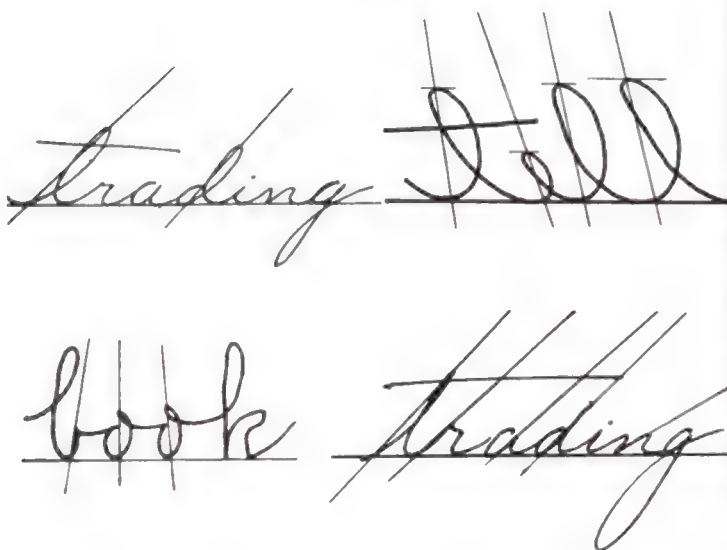 trading
tell
book
trading